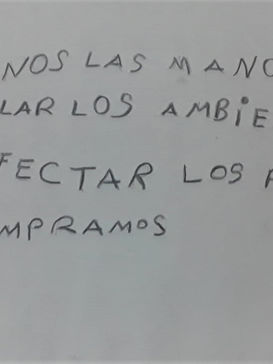 NOS LAS MANO
LAR LOS AMBiE
FECTAR LOS P
MPRAMOS